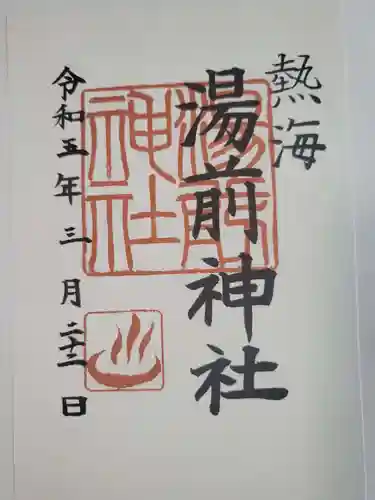 熱海
湯前神社
湯前
神社
令和五年三月二十二日